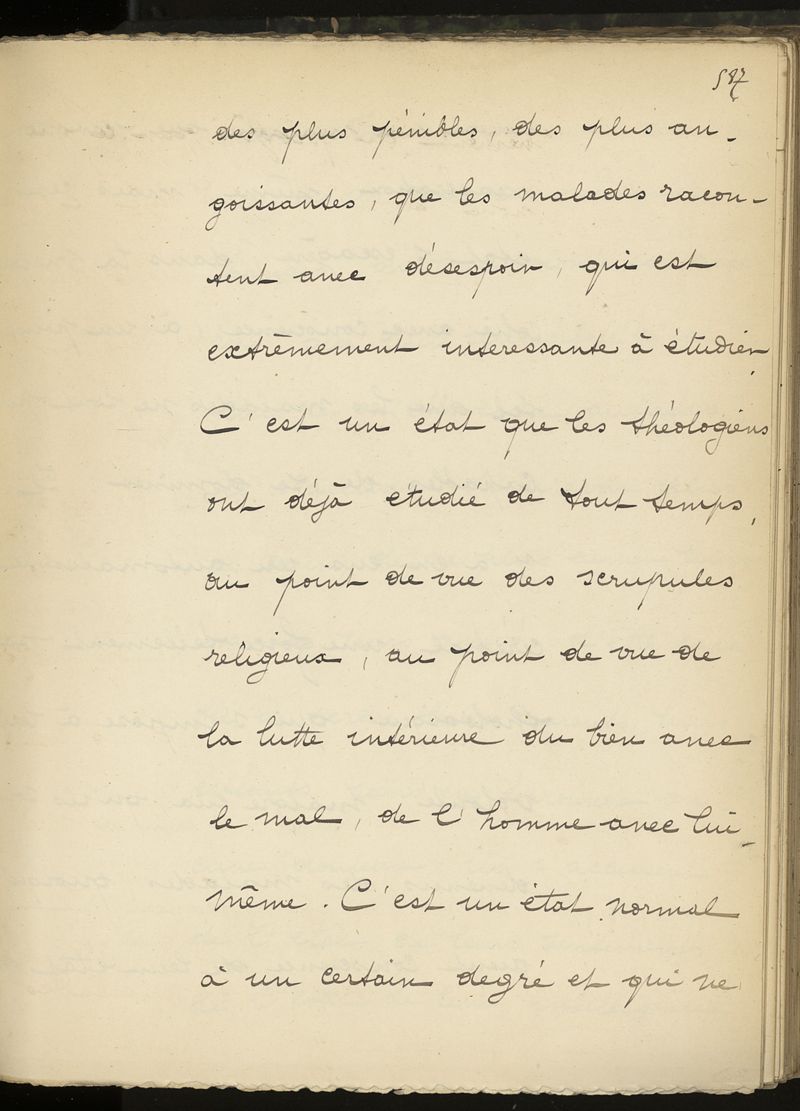 587
des plus pénibles, des plus an-
goissantes, que les malades racon-
tent avec désespoir, qui est
extrêmement interessante à étudier.
C'est un état que les théologiens
ont déjà étudié de tout temps,
au point de vue des scrupules
religieux, au point de vue de
la lutte intérieure du bien avec
le mal, de l'homme avec lui-
même. C'est un état normal
à un certain degré et qui ne